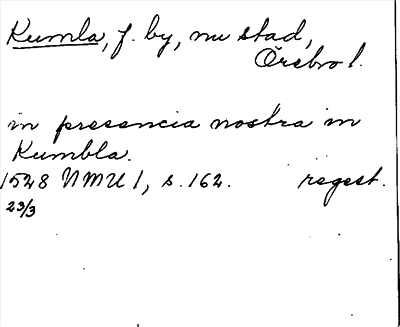 Kumla, f. by, nu stad,
Örebro l.
in presencia nostra in
Kumbla.
1528 NMU 1, s. 162. regest.
23/3